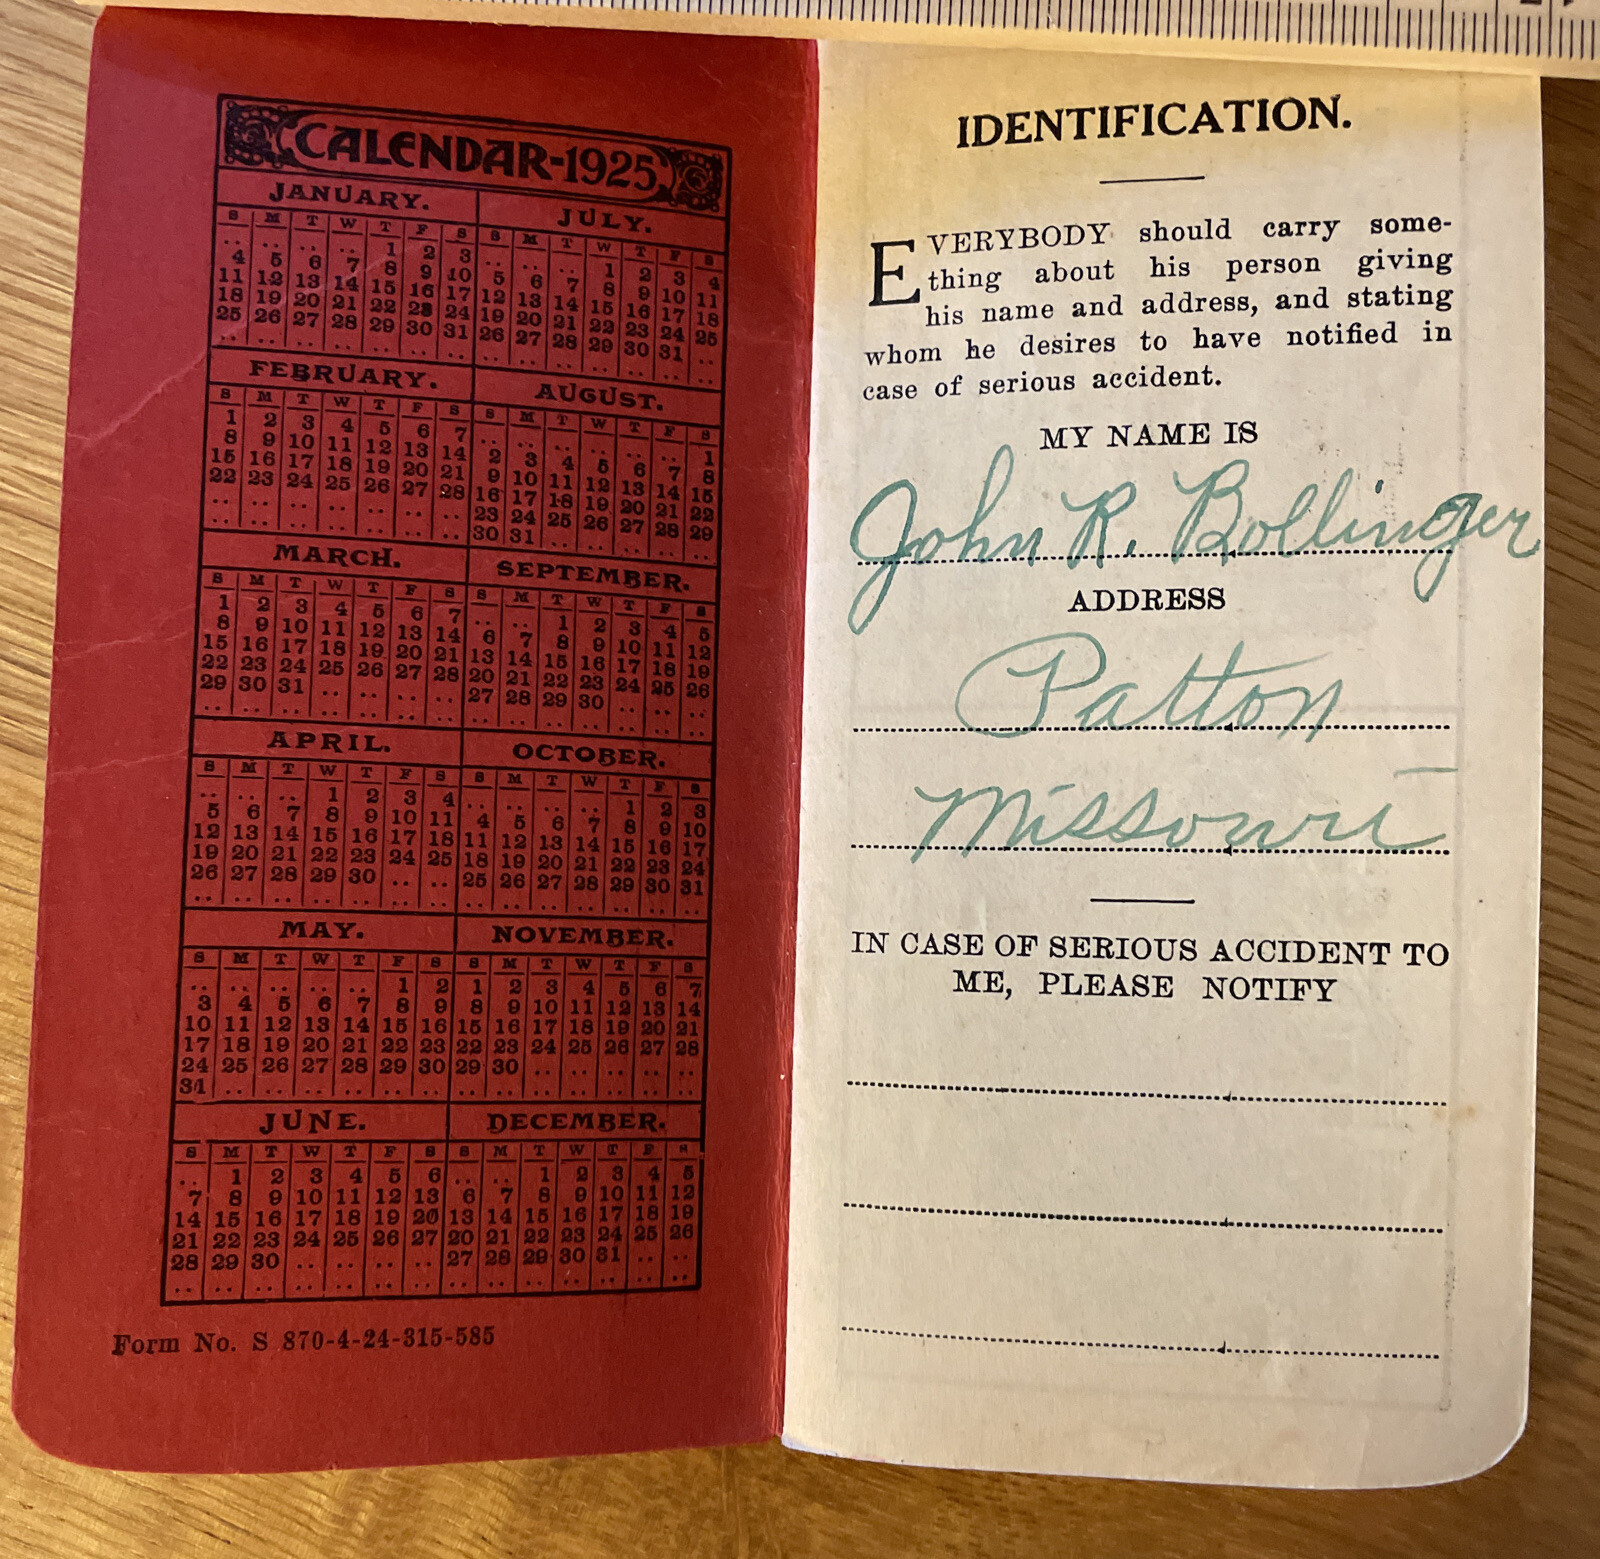 CALENDAR-1925
JANUARY.
S M T W T F S
.. .. .. .. 1 2 3
4 5 6 7 8 9 10
11 12 13 14 15 16 17
18 19 20 21 22 23 24
25 26 27 28 29 30 31
.. .. .. .. .. .. ..
FEBRUARY.
S M T W T F S
1 2 3 4 5 6 7
8 9 10 11 12 13 14
15 16 17 18 19 20 21
22 23 24 25 26 27 28
.. .. .. .. .. .. ..
.. .. .. .. .. .. ..
MARCH.
S M T W T F S
1 2 3 4 5 6 7
8 9 10 11 12 13 14
15 16 17 18 19 20 21
22 23 24 25 26 27 28
29 30 31 .. .. .. ..
.. .. .. .. .. .. ..
APRIL.
S M T W T F S
.. .. .. 1 2 3 4
5 6 7 8 9 10 11
12 13 14 15 16 17 18
19 20 21 22 23 24 25
26 27 28 29 30 .. ..
.. .. .. .. .. .. ..
MAY.
S M T W T F S
.. .. .. .. .. 1 2
3 4 5 6 7 8 9
10 11 12 13 14 15 16
17 18 19 20 21 22 23
24 25 26 27 28 29 30
31 .. .. .. .. .. ..
JUNE.
S M T W T F S
.. 1 2 3 4 5 6
7 8 9 10 11 12 13
14 15 16 17 18 19 20
21 22 23 24 25 26 27
28 29 30 .. .. .. ..
.. .. .. .. .. .. ..
JULY.
S M T W T F S
.. .. .. 1 2 3 4
5 6 7 8 9 10 11
12 13 14 15 16 17 18
19 20 21 22 23 24 25
26 27 28 29 30 31 ..
.. .. .. .. .. .. ..
AUGUST.
S M T W T F S
.. .. .. .. .. .. 1
2 3 4 5 6 7 8
9 10 11 12 13 14 15
16 17 18 19 20 21 22
23 24 25 26 27 28 29
30 31 .. .. .. .. ..
SEPTEMBER.
S M T W T F S
.. .. 1 2 3 4 5
6 7 8 9 10 11 12
13 14 15 16 17 18 19
20 21 22 23 24 25 26
27 28 29 30 .. .. ..
.. .. .. .. .. .. ..
OCTOBER.
S M T W T F S
.. .. .. .. 1 2 3
4 5 6 7 8 9 10
11 12 13 14 15 16 17
18 19 20 21 22 23 24
25 26 27 28 29 30 31
.. .. .. .. .. .. ..
NOVEMBER.
S M T W T F S
1 2 3 4 5 6 7
8 9 10 11 12 13 14
15 16 17 18 19 20 21
22 23 24 25 26 27 28
29 30 .. .. .. .. ..
.. .. .. .. .. .. ..
DECEMBER.
S M T W T F S
.. .. 1 2 3 4 5
6 7 8 9 10 11 12
13 14 15 16 17 18 19
20 21 22 23 24 25 26
27 28 29 30 31 .. ..
.. .. .. .. .. .. ..
Form No. S 870-4-24-315-585
IDENTIFICATION.
EVERYBODY should carry some-
thing about his person giving
his name and address, and stating
whom he desires to have notified in
case of serious accident.
MY NAME IS
John R. Bollinger
ADDRESS
Patton
Missouri
IN CASE OF SERIOUS ACCIDENT TO
ME, PLEASE NOTIFY